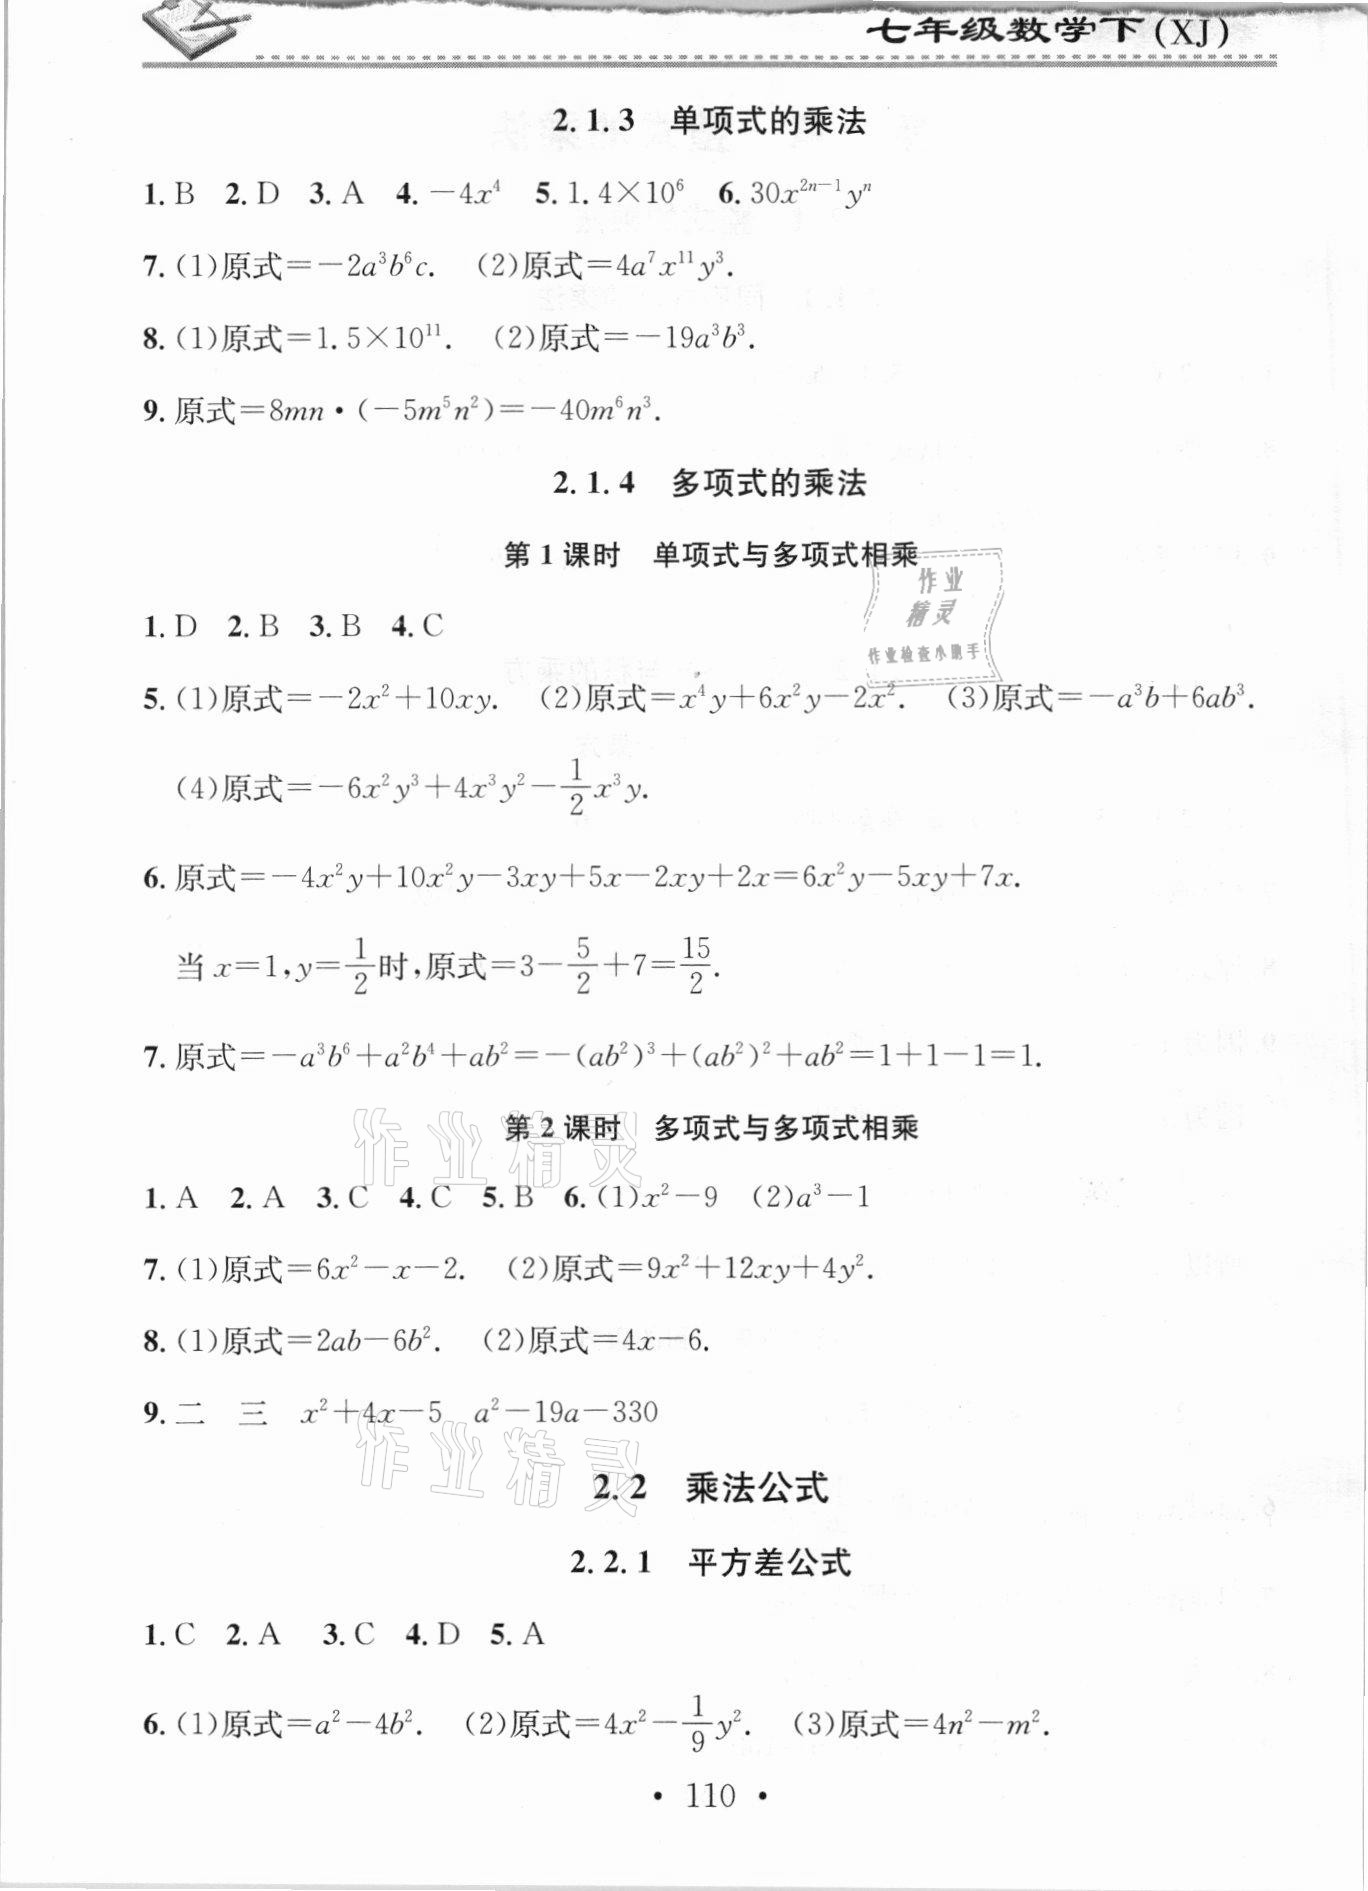 七年级数学下(XJ)
2.1.3 单项式的乘法
1.B 2.D 3.A 4.－4x⁴ 5.1.4×10⁶ 6.30x²ⁿ⁻¹yⁿ
7.(1)原式=－2a³b⁶c. (2)原式=4a⁷x¹¹y³.
8.(1)原式=1.5×10¹¹. (2)原式=－19a³b³.
9.原式=8mn·(－5m⁵n²)=－40m⁶n³.
2.1.4 多项式的乘法
第1课时 单项式与多项式相乘
作业
精灵
作业检查小助手
1.D 2.B 3.B 4.C
5.(1)原式=－2x²+10xy. (2)原式=x⁴y+6x²y－2x². (3)原式=－a³b+6ab³.
(4)原式=－6x²y³+4x³y²－1/2x³y.
6.原式=－4x²y+10x²y－3xy+5x－2xy+2x=6x²y－5xy+7x.
当x=1,y=1/2时,原式=3－5/2+7=15/2.
7.原式=－a³b⁶+a²b⁴+ab²=－(ab²)³+(ab²)²+ab²=1+1－1=1.
第2课时 多项式与多项式相乘
作业精灵
1.A 2.A 3.C 4.C 5.B 6.(1)x²－9 (2)a³－1
7.(1)原式=6x²－x－2. (2)原式=9x²+12xy+4y².
8.(1)原式=2ab－6b². (2)原式=4x－6.
9.二 三 x²+4x－5 a²－19a－330
作业精灵
2.2 乘法公式
2.2.1 平方差公式
1.C 2.A 3.C 4.D 5.A
6.(1)原式=a²－4b². (2)原式=4x²－1/9y². (3)原式=4n²－m².
· 110 ·